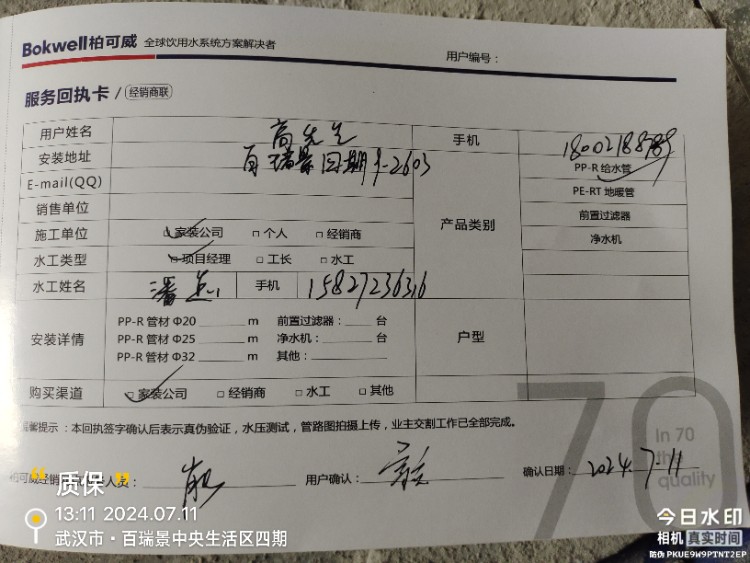 Bokwell柏可威 全球饮用水系统方案解决者
用户编号：
服务回执卡 / 经销商联
用户姓名 高先生 手机 18002188789
安装地址 百瑞景四期9-2603 PP-R 给水管
E-mail(QQ) PE-RT 地暖管
销售单位 产品类别 前置过滤器
施工单位 家装公司 个人 经销商 净水机
水工类型 项目经理 工长 水工
水工姓名 潘 手机 15827236316
安装详情 PP-R 管材 Φ20 m 前置过滤器： 台 户型
PP-R 管材 Φ25 m 净水机： 台
PP-R 管材 Φ32 m 其他：
购买渠道 家装公司 经销商 水工 其他
70
提示：本回执签字确认后表示真伪验证，水压测试，管路图拍摄上传，业主交割工作已全部完成。
In 70
the
quality
可威经 人员： 用户确认： 确认日期： 2024.7.11
“质保”
13:11 2024.07.11
武汉市·百瑞景中央生活区四期
今日水印
相机 真实时间
防伪 PKUE9W9PTNT2EP